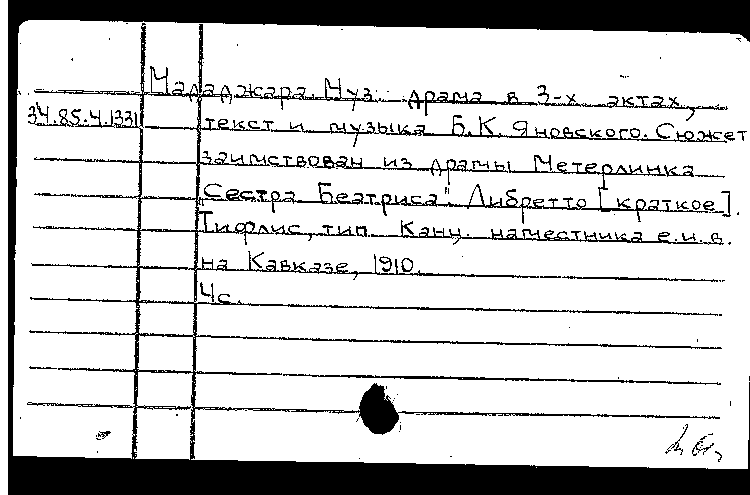 Мададжара. Муз. драма в 3-х актах,
34.85.4.1331 текст и музыка Б.К. Яновского. Сюжет
заимствован из драмы Метерлинка
„Сестра Беатриса". Либретто [краткое].
Тифлис, тип. Канц. наместника е.и.в.
на Кавказе, 1910.
4с.